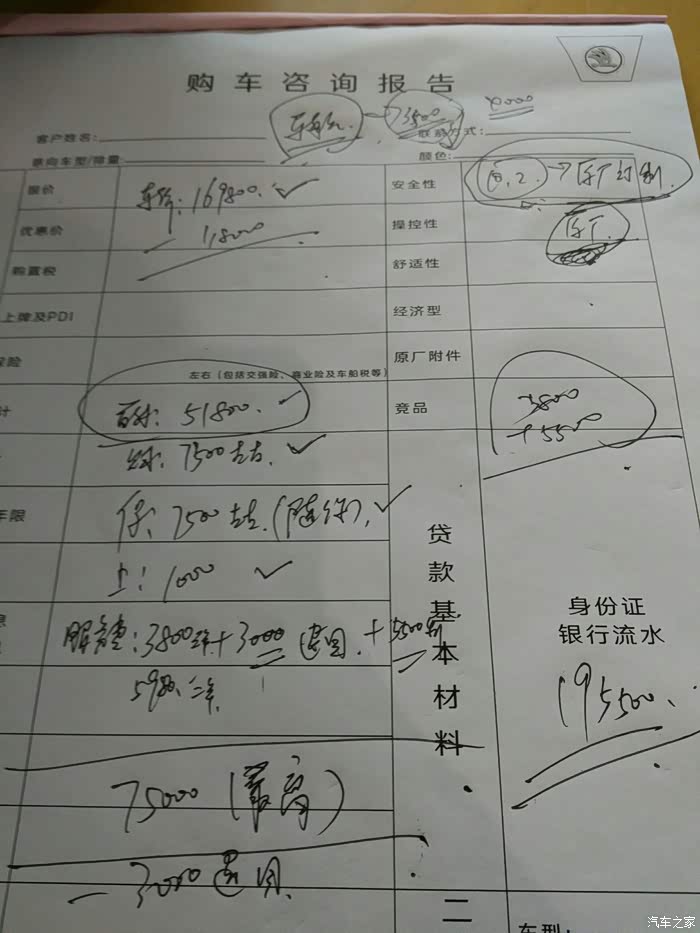 购车咨询报告
73500
客户姓名:
联系方式:
意向车型/排量:
颜色:
报价
车价: 169800. ✓
安全性
→原厂
优惠价
18000
操控性
原厂
购置税
舒适性
上牌及PDI
经济型
保险
左右(包括交强险、商业险及车船税等)
原厂附件
计
首付: 51800. ✓
竞品
3800
+5500
7500左右. ✓
年限
保: 7500左右. ✓
贷款基本材料
上: 1000 ✓
身份证
银行流水
3800 +3000 退回 +5500
5980 二年
195500.
75000 (最高)
- 3000退回
二
车型:
汽车之家